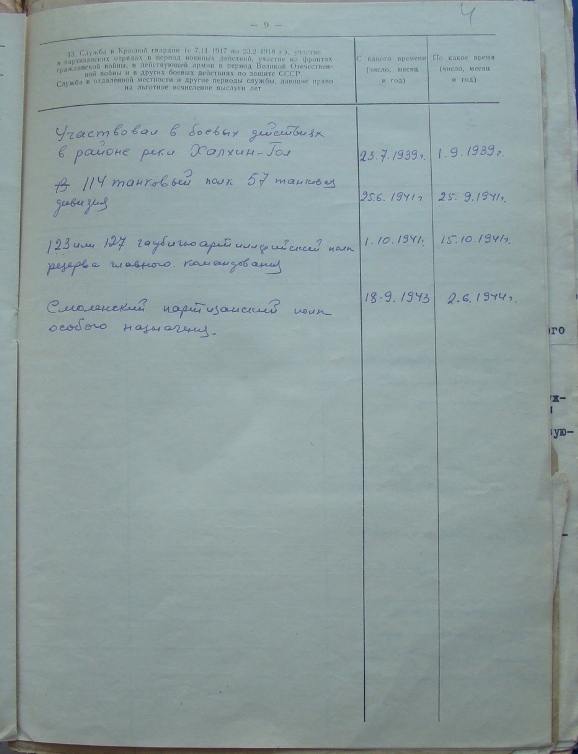 — 9 —
4
13. Служба в Красной гвардии (с 7.11 1917 по 23.2 1918 г.), участие
в партизанских отрядах в период военных действий, участие на фронтах
гражданской войны, в действующей армии в период Великой Отечествен-
ной войны и в других боевых действиях по защите СССР.
Служба в отдаленной местности и другие периоды службы, дающие право
на льготное исчисление выслуги лет
С какого времени
(число, месяц
и год)
По какое время
(число, месяц
и год)
Участвовал в боевых действиях
в районе реки Халхин-Гол 23.7.1939г. 1.9.1939г.
114 танковый полк 57 танковая
дивизия 25.6.1941г 25.9.1941г.
123 или 127 гаубично артиллерийский полк 1.10.1941г. 15.10.1941г.
резерва главного командования
Смоленский партизанский полк 18.9.1943 2.6.1944г.
особого назначения.
ого
ую-